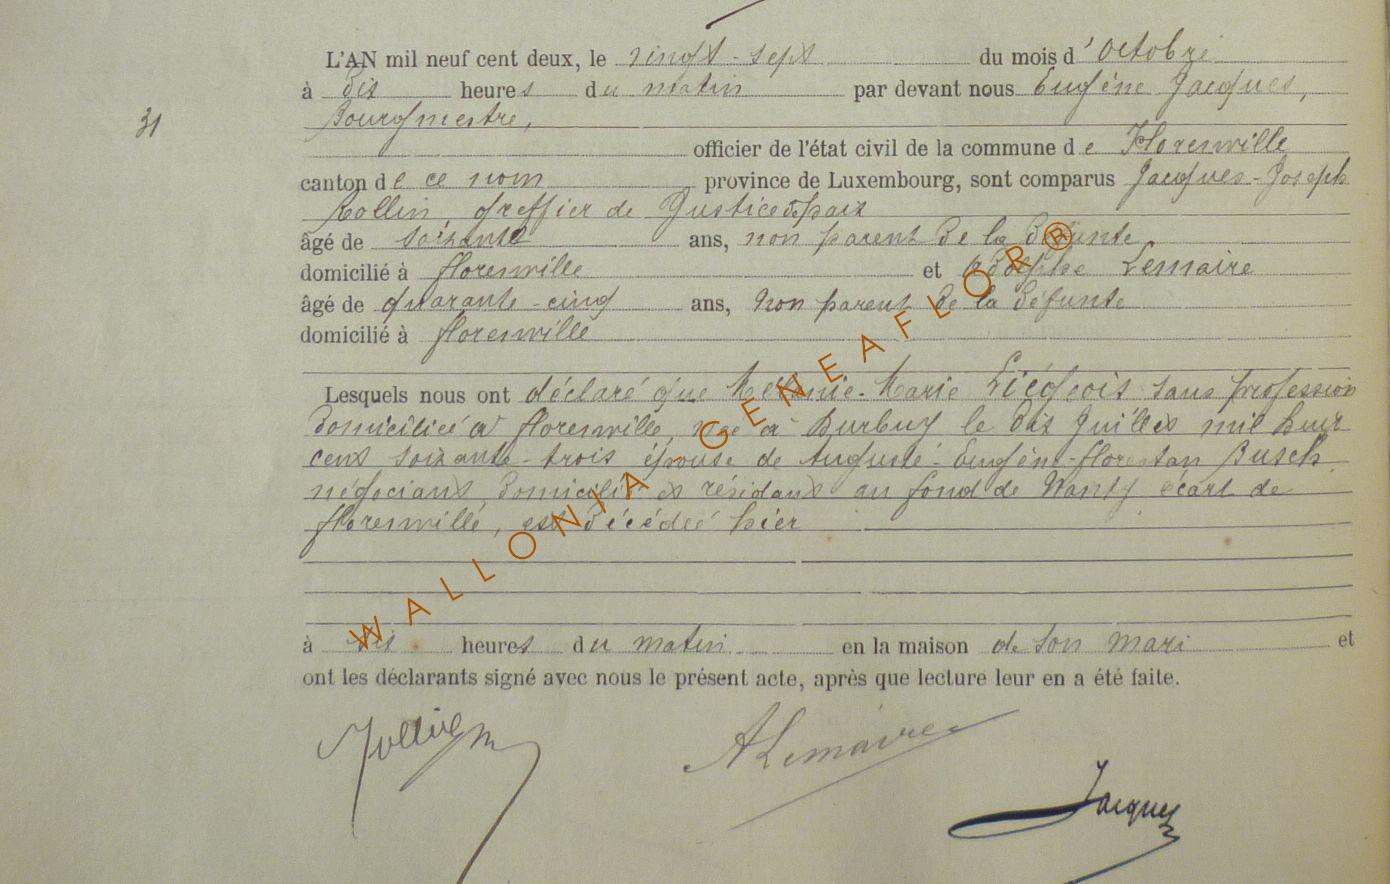 L'AN mil neuf cent deux, le vingt-sept du mois d'Octobre
à Dix heures du matin par devant nous Eugène Jacques,
31
Bourgmestre,
officier de l'état civil de la commune de Florenville
canton de ce nom province de Luxembourg, sont comparus Jacques-Joseph
Rollin, greffier de Justice de paix
âgé de soixante ans, non parent de la défunte
domicilié à florenville et Adolphe Lemaire
âgé de quarante-cinq ans, non parent de la défunte
domicilié à florenville
Lesquels nous ont déclaré que Mélanie-Marie Liégeois sans profession
Domiciliée à florenville, née à Durbuy le dix Juillet mil huit
cent soixante-trois épouse de Auguste-Eugène-florentan Busch
négociant, domicilié et résidant au fond de Wanty écart de
florenville, est décédée hier
à dix heures du matin en la maison de son mari et
ont les déclarants signé avec nous le présent acte, après que lecture leur en a été faite.
ALemaire
Jacques
WALLONIA GENEAFLOR®